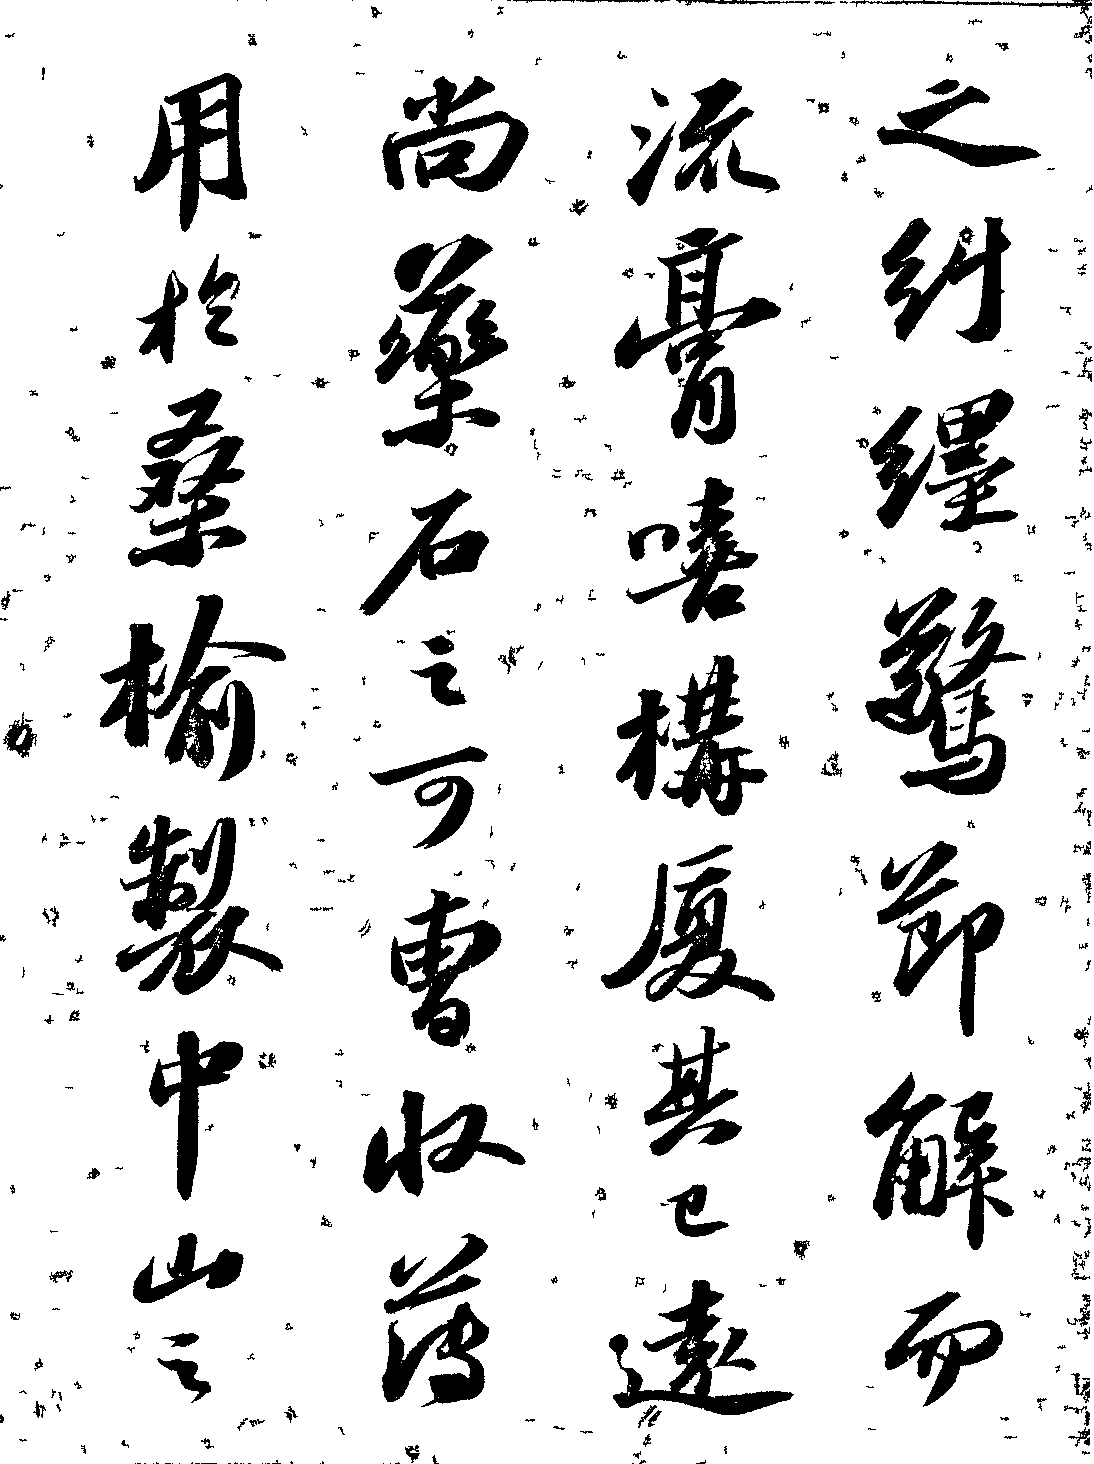 之糾纆驚節解而
流膏嘻構厦其已遠
尚藥石之可曹收薄
用於桑榆製中山之